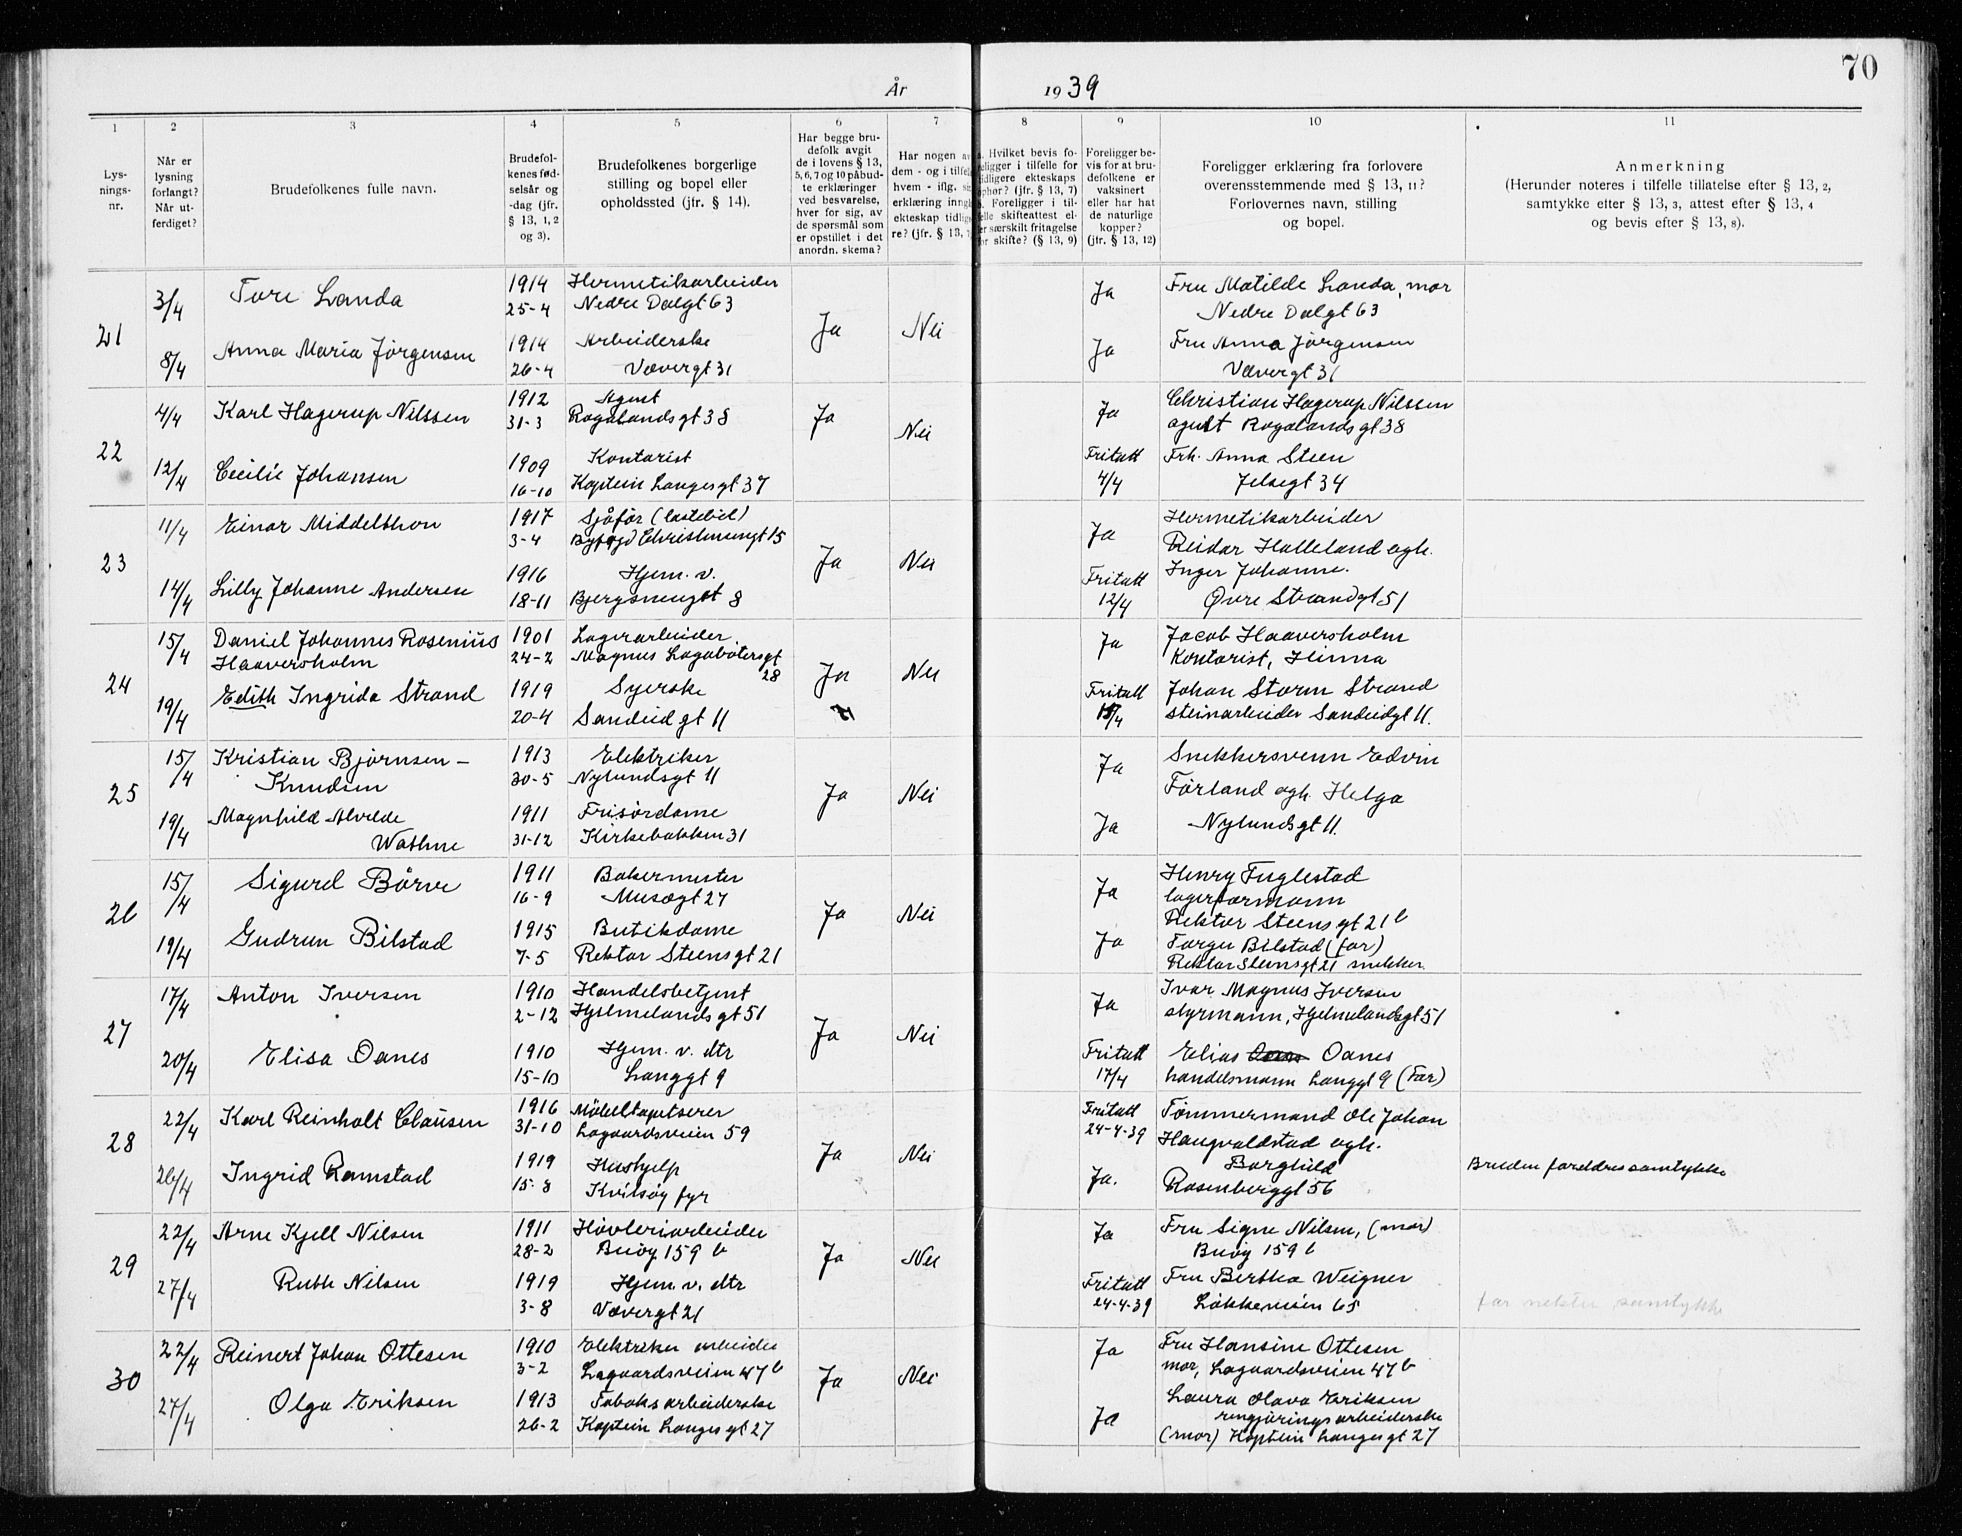 70
År 1939
1
2
3
4
5
6
7
8
9
10
11
Lys-
nings-
nr.
Når er
lysning
forlangt?
Når ut-
ferdiget?
Brudefolkenes fulle navn.
Brudefol-
kenes fød-
selsår og
-dag (jfr.
§ 13, 1, 2
og 3).
Brudefolkenes borgerlige
stilling og bopel eller
opholdssted (jfr. § 14).
Har begge bru-
defolk avgit
de i lovens § 13,
5, 6, 7 og 10 påbud-
te erklæringer
ved besvarelse,
hver for sig, av
de spørsmål som
er opstillet i det
anordn. skema?
Har nogen av
dem - og i tilfelle
hvem - iflg. sin
erklæring inngått
ekteskap tidlige-
re? (jfr. § 13, 7)
a. Hvilket bevis fo-
religger i tilfelle for
tidligere ekteskaps
ophør? (jfr. § 13, 7)
b. Foreligger i til-
felle skifteattest el-
ler særskilt fritagelse
for skifte? (§ 13, 9)
Foreligger be-
vis for at bru-
defolkene er
vaksinert
eller har hat
de naturlige
kopper?
(jfr. § 13, 12)
Foreligger erklæring fra forlovere
overensstemmende med § 13, 11?
Forlovernes navn, stilling
og bopel.
Anmerkning
(Herunder noteres i tilfelle tillatelse efter § 13, 2,
samtykke efter § 13, 3, attest efter § 13, 4
og bevis efter § 13, 8).
21
3/4
Tore Landa
1914
25-4
Hermetikarbeider
Nedre Dalgt 63
Ja
Nei
Ja
Fru Matilde Landa, mor
Nedre Dalgt 63
8/4
Anna Maria Jørgensen
1914
26-4
Arbeiderske
Vævergt 31
Ja
Fru Anna Jørgensen
Vævergt 31
22
4/4
Karl Hagerup Nilssen
1912
31-3
Agent
Rogalandsgt 38
Ja
Nei
Ja
Christian Hagerup Nilssen
agent Rogalandsgt 38
12/4
Cecilie Johansen
1909
16-10
Kontorist
Kaptein Langesgt 37
Fritatt
4/4
Frk. Anna Steen
Jelsegt 34
23
11/4
Einar Middelthon
1917
3-4
Sjåfør (lastebil)
Christinengt 15
Ja
Nei
Ja
Hermetikarbeider
Reidar Halleland ogh.
14/4
Lilly Johanne Andersen
1916
18-11
Hjem. v.
8
Fritatt
12/4
Inger Johanne.
Øvre Strandgt 51
24
15/4
Daniel Johannes Rosenius
Haaversholm
1901
24-2
Lagerarbeider
Magnus Lagabøtersgt
28
Ja
Nei
Ja
Jacob Haaversholm
Kontorist, Hinna
19/4
Edith Ingrida Strand
1919
20-4
Syerske
Sandeidgt 11
Fritatt
15/4
Johan Storm Strand
steinarbeider Sandeidgt 11.
25
15/4
Kristian Bjørnsen -
Knudsen
1913
30-5
Elektriker
Nylundsgt 11
Ja
Nei
Ja
Snekkersvenn Edvin
Førland ogh. Helga
19/4
Magnhild Alvilde
Wathne
1911
31-12
Frisørdame
Kirkebakken 31
Ja
Nylundsgt 11.
26
15/4
Sigurd Børve
1911
16-9
Bakermester
Muségt 27
Ja
Nei
Ja
Henry Fuglestad
lagerformann
Rektor Steensgt 21 b
19/4
Gudrun Bilstad
1915
7-5
Butikdame
Rektor Steensgt 21
Ja
Torger Bilstad (far)
Rektor Steensgt 21 snekker
27
17/4
Anton Iversen
1910
2-12
Handelsbetjent
Hjelmelandsgt 51
Ja
Nei
Ja
Ivar Magnus Iversen
styrmann, Hjelmelandsgt 51
20/4
Elisa Oanes
1910
15-10
Hjem. v. dtr
Langgt 9
Fritatt
17/4
Elias Oanes
handelsmann Langgt 9 (Far)
28
22/4
Karl Reinholt Clausen
1916
31-10
Møbeltapetserer
Lagaardsveien 59
Ja
Nei
Fritatt
24-4-39
Tømmermand Ole Johan
Haugvaldstad ogh.
26/4
Ingrid Ramstad
1919
15-8
Hushjelp
Kvitsøy fyr
Ja.
Borghild
Rosenberggt 56
Bruden foreldres samtykke
29
22/4
Arne Kjell Nilsen
1911
28-2
Høvleriarbeider
Buøy 159 b
Ja
Nei
Ja
Fru Signe Nilsen, (mor)
Buøy 159 b
27/4
Ruth Nilsen
1919
3-8
Hjem. v. dtr
Vævergt 21
Fritatt
24-4-39
Fru Bertha Weigner
Løkkeveien 65
far nekter samtykke
30
22/4
Reinert Johan Ottesen
1910
3-2
Elektriker arbeider
Lagaardsveien 47 b
Ja
Nei
Ja
Fru Hansine Ottesen
mor, Lagaardsveien 47 b
27/4
Olga Eriksen
1913
26-2
Tobaksarbeiderske
Kaptein Langesgt 27
Ja
Laura Olava Eriksen
rengjøringsarbeiderske
(mor) Kaptein Langesgt 27